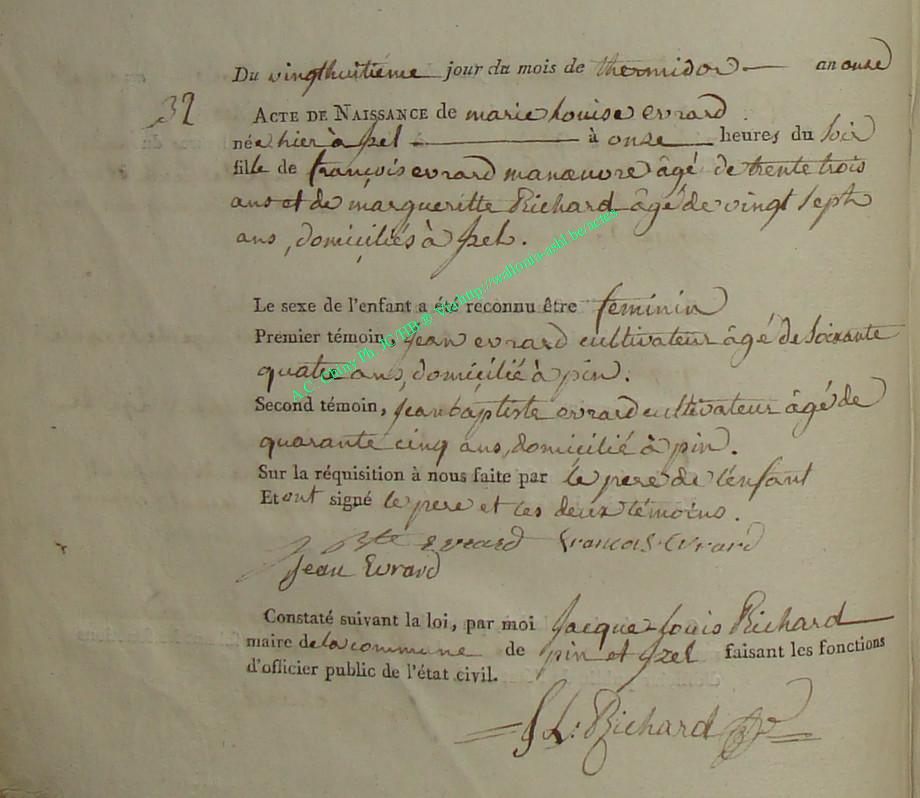 Du vingthuitiéme jour du mois de thermidor an onze
32
ACTE DE NAISSANCE de marie Louise evrard
née hier à Jzel à onze heures du soir
fille de françois evrard manœuvre âgé de trente trois
ans et de margueritte Richard âgé de vingt sept
ans, domiciliés à Jzel.
Le sexe de l'enfant a été reconnu être feminin
Premier témoin, Jean evrard cultivateur âgé de soixante
quatre ans, domicilié à pin.
Second témoin, Jean baptiste evrard cultivateur âgé de
quarante cinq ans, domicilié à pin.
Sur la réquisition à nous faite par le pere de l'enfant
Et ont signé le pere et les deux témoins.
J Bte evrard françois Evrard
Jean Evrard
Constaté suivant la loi, par moi Jacque Louis Richard
maire de la commune de pin et Jzel faisant les fonctions
d'officier public de l'état civil.
J L: Richard
A.C. Chiny Ph. JG HB ® Via http://wallonia-asbl.be/actes